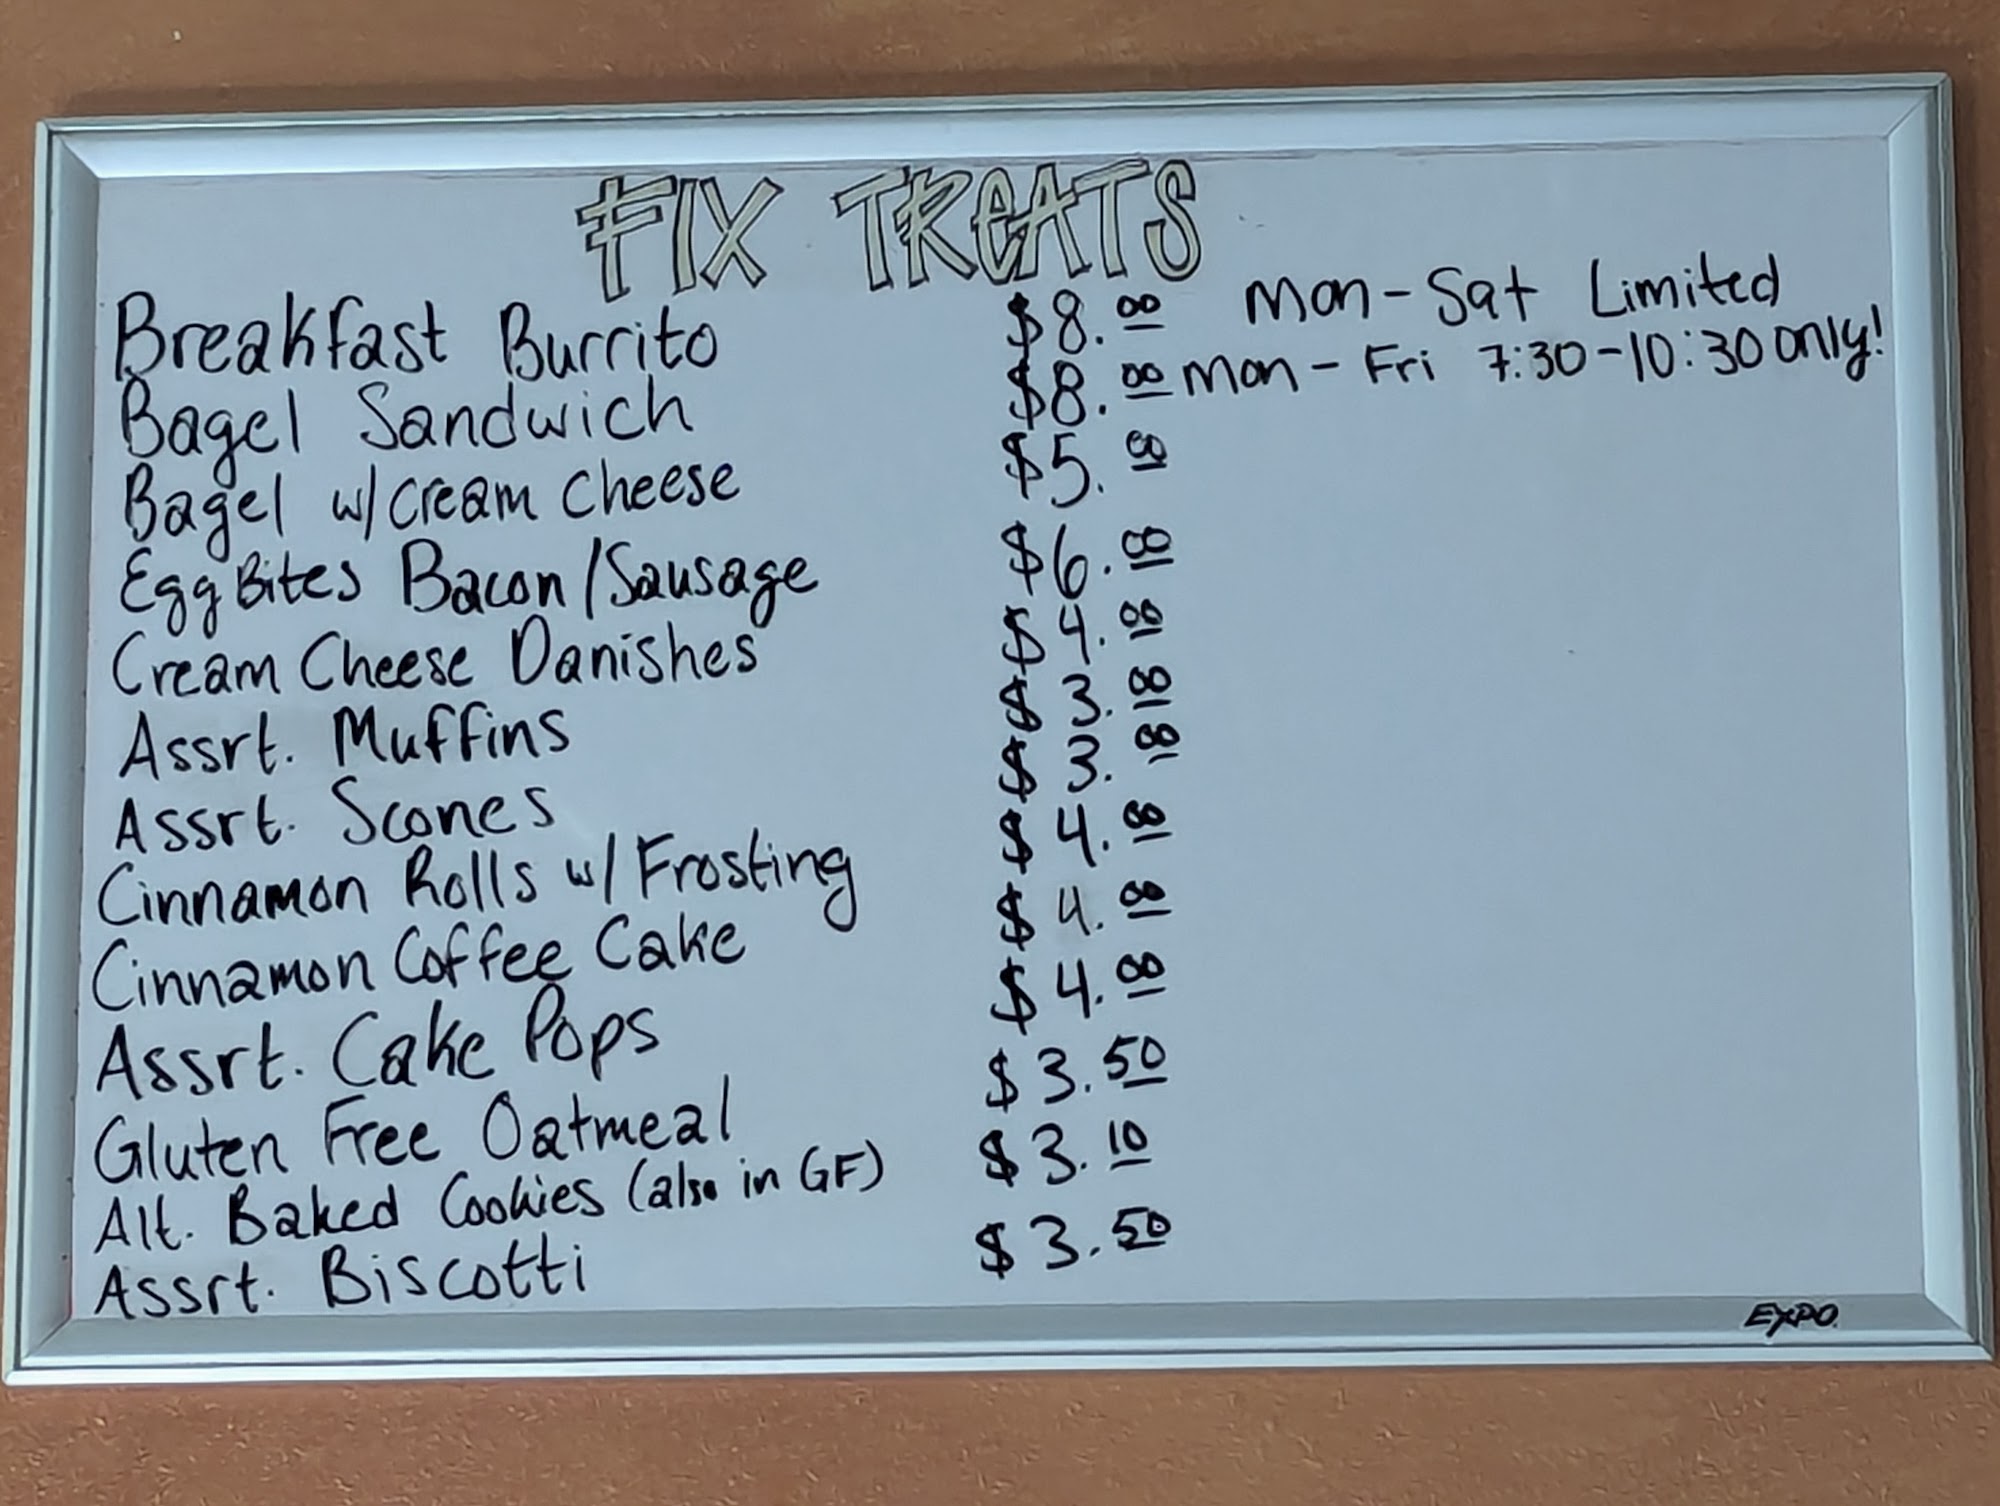 FIX TREATS
Breakfast Burrito $8.00 Mon-Sat Limited
Bagel Sandwich $8.00 Mon-Fri 7:30-10:30 only!
Bagel w/ cream cheese $5.00
Egg Bites Bacon/Sausage $6.00
Cream Cheese Danishes $4.00
Assrt. Muffins $3.00
Assrt. Scones $3.00
Cinnamon Rolls w/ Frosting $4.00
Cinnamon Coffee Cake $4.00
Assrt. Cake Pops $4.00
Gluten Free Oatmeal $3.50
Alt. Baked Cookies (also in GF) $3.10
Assrt. Biscotti $3.50
EXPO